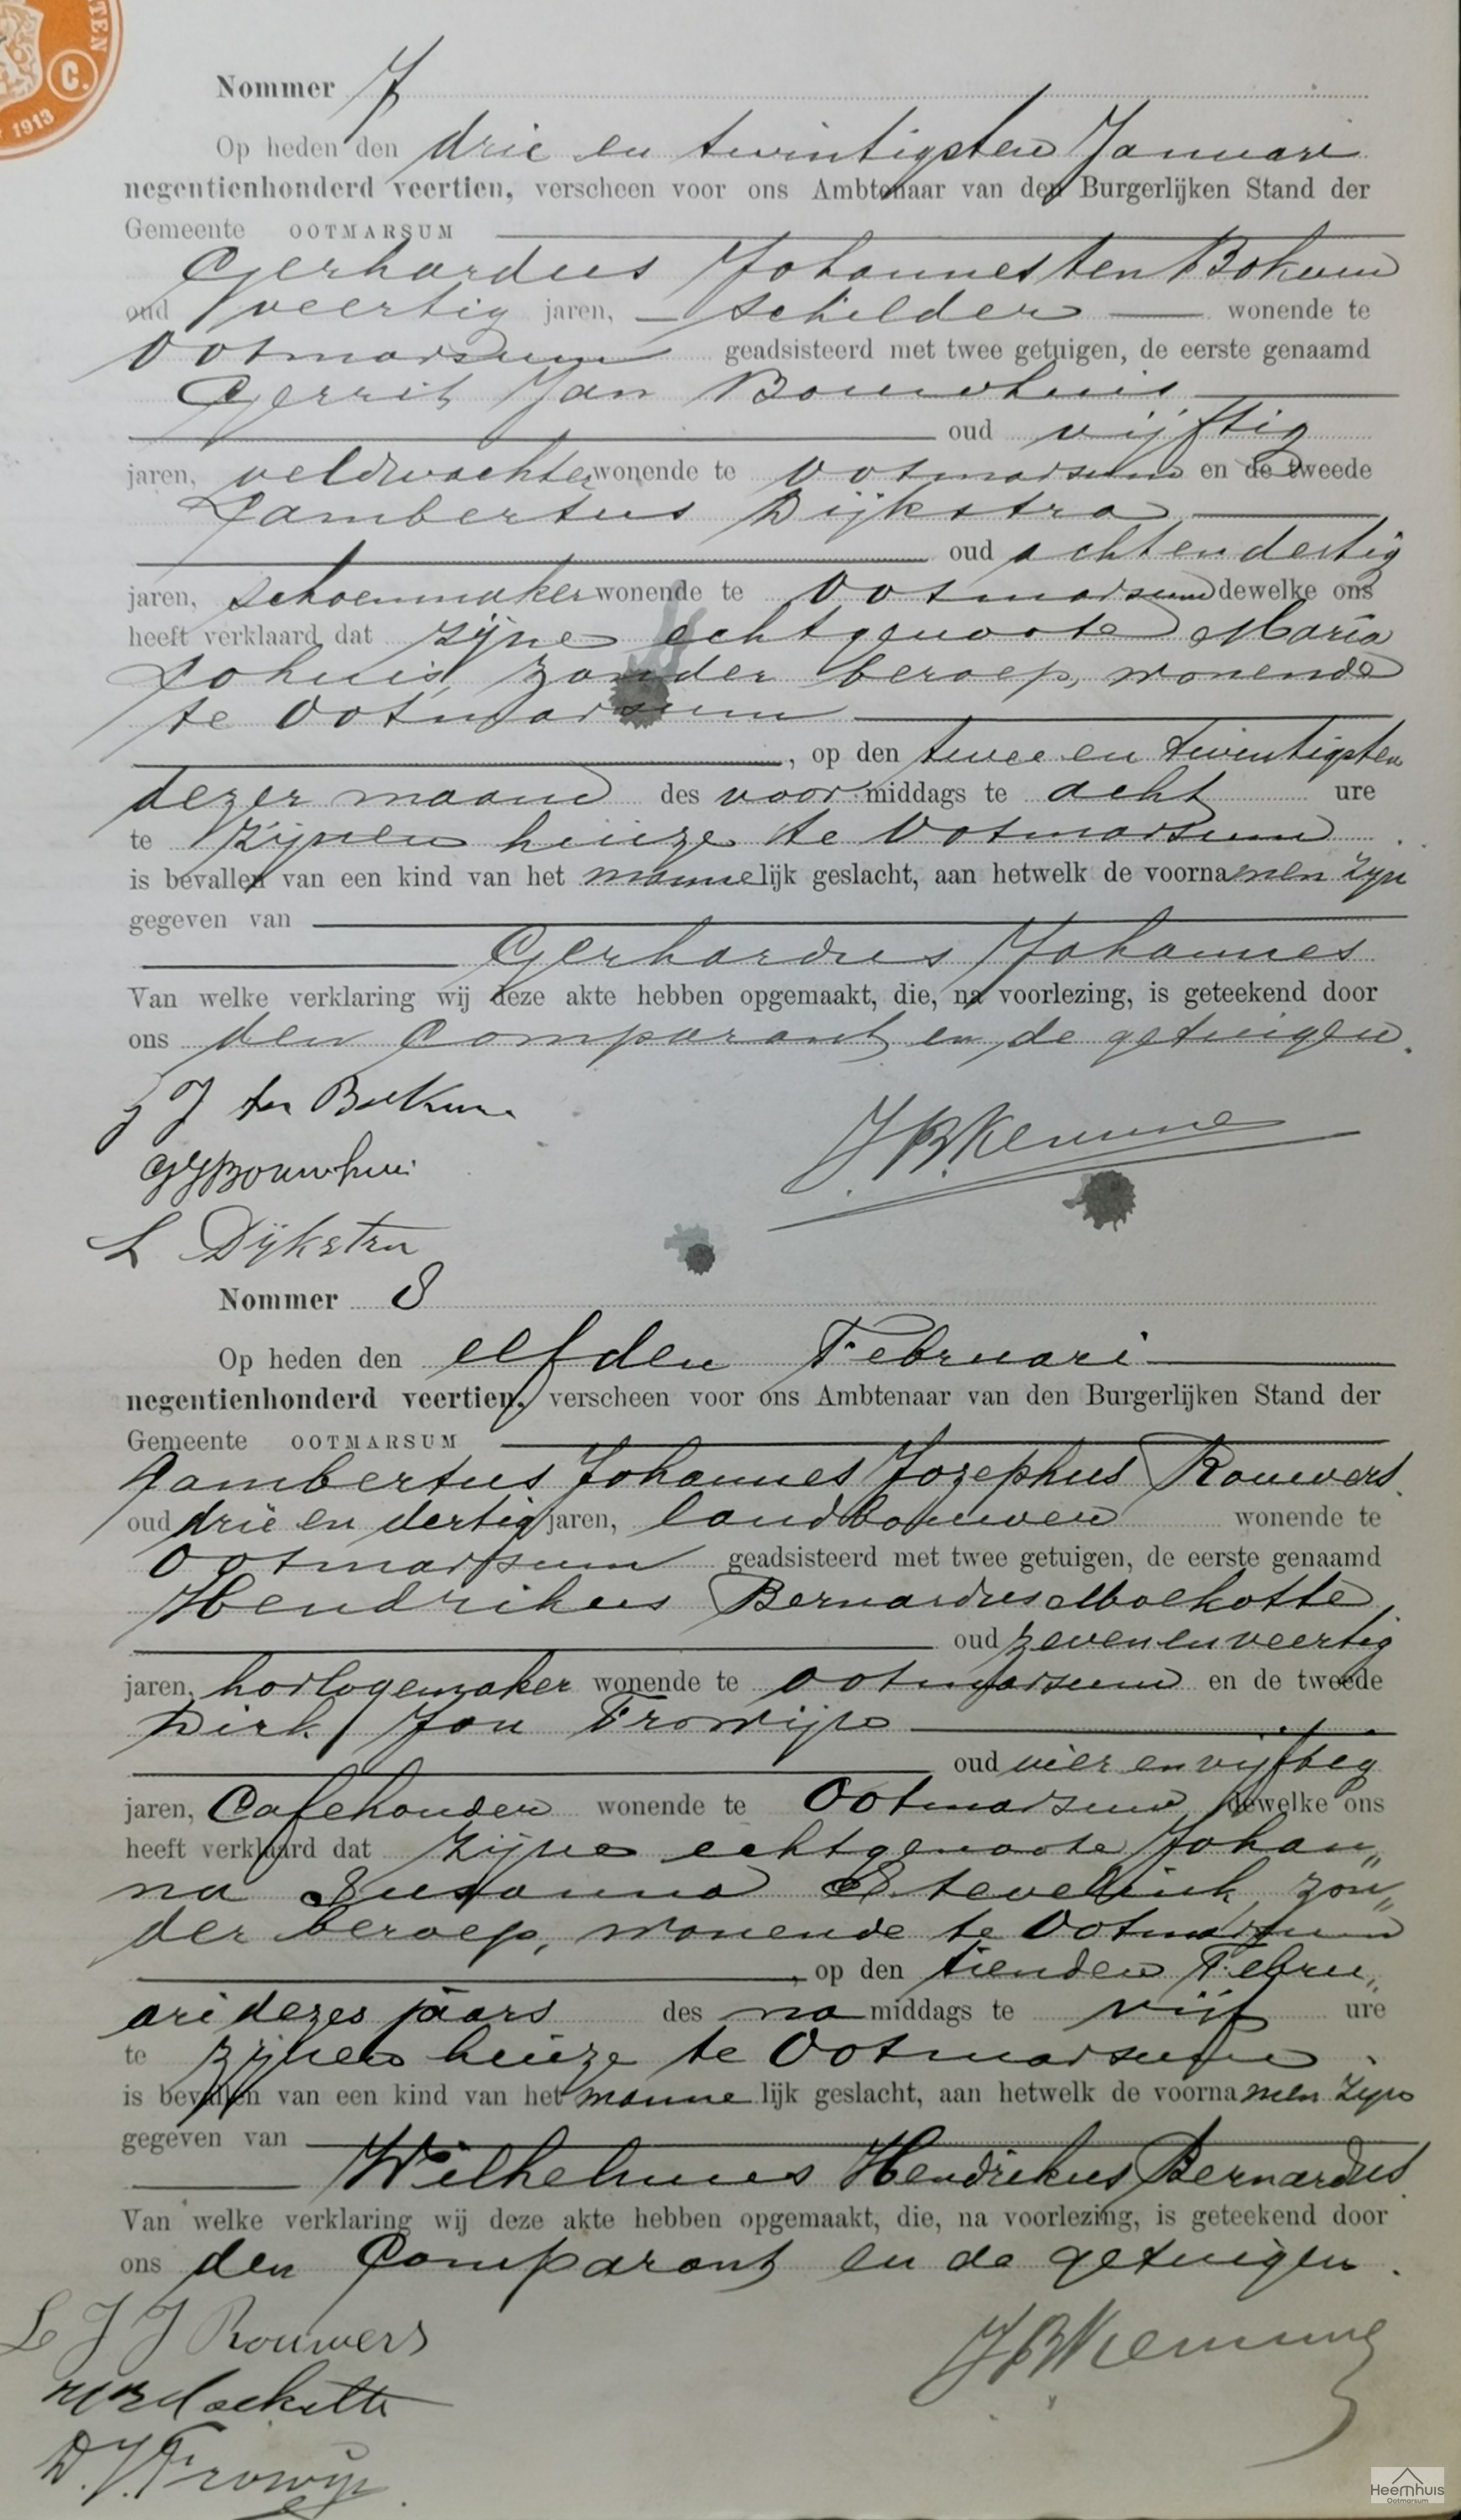 TEN
C.
1913
Nommer 7
Op heden den drie en twintigsten Januari
negentienhonderd veertien, verscheen voor ons Ambtenaar van den Burgerlijken Stand der
Gemeente OOTMARSUM
Gerhardus Johannes ten Bokum
oud veertig jaren, schilder wonende te
Ootmarsum geadsisteerd met twee getuigen, de eerste genaamd
Gerrit Jan Bouwhuis
oud vijftig
jaren, veldwachter wonende te Ootmarsum en de tweede
Lambertus Dijkstra
oud achtendertig
jaren, schoenmaker wonende te Ootmarsum dewelke ons
heeft verklaard dat zijne echtgenoote Maria
Lohuis, zonder beroep, wonende
te Ootmarsum
, op den twee en twintigsten
dezer maand des voormiddags te acht ure
te zijnen huize te Ootmarsum
is bevallen van een kind van het mannelijk geslacht, aan hetwelk de voornamen zijn
gegeven van
Gerhardus Johannes
Van welke verklaring wij deze akte hebben opgemaakt, die, na voorlezing, is geteekend door
ons den Comparant en de getuigen.
G J ten Bokum
JBKemme
GJBouwhuis
L Dijkstra
Nommer 8
Op heden den elfden Februari
negentienhonderd veertien, verscheen voor ons Ambtenaar van den Burgerlijken Stand der
Gemeente OOTMARSUM
Lambertus Johannes Jozephus Rouwers
oud drie en dertig jaren, landbouwer wonende te
Ootmarsum geadsisteerd met twee getuigen, de eerste genaamd
Hendrikus Bernardus Moekotte
oud zevenenveertig
jaren, horlogemaker wonende te Ootmarsum en de tweede
Dirk Jan Frowijn
oud vier en vijftig
jaren, Cafehouder wonende te Ootmarsum dewelke ons
heeft verklaard dat zijne echtgenoote Johan„
na Susanna Stevelink, zon„
der beroep, wonende te Ootmarsum
, op den tienden Febru„
ari dezes jaars des namiddags te vijf ure
te zijnen huize te Ootmarsum
is bevallen van een kind van het mannelijk geslacht, aan hetwelk de voornamen zijn
gegeven van
Wilhelmus Hendrikus Bernardus
Van welke verklaring wij deze akte hebben opgemaakt, die, na voorlezing, is geteekend door
ons den Comparant en de getuigen.
L J J Rouwers
JBKemme
HBMoekotte
D.J.Frowijn
Heemhuis
Ootmarsum